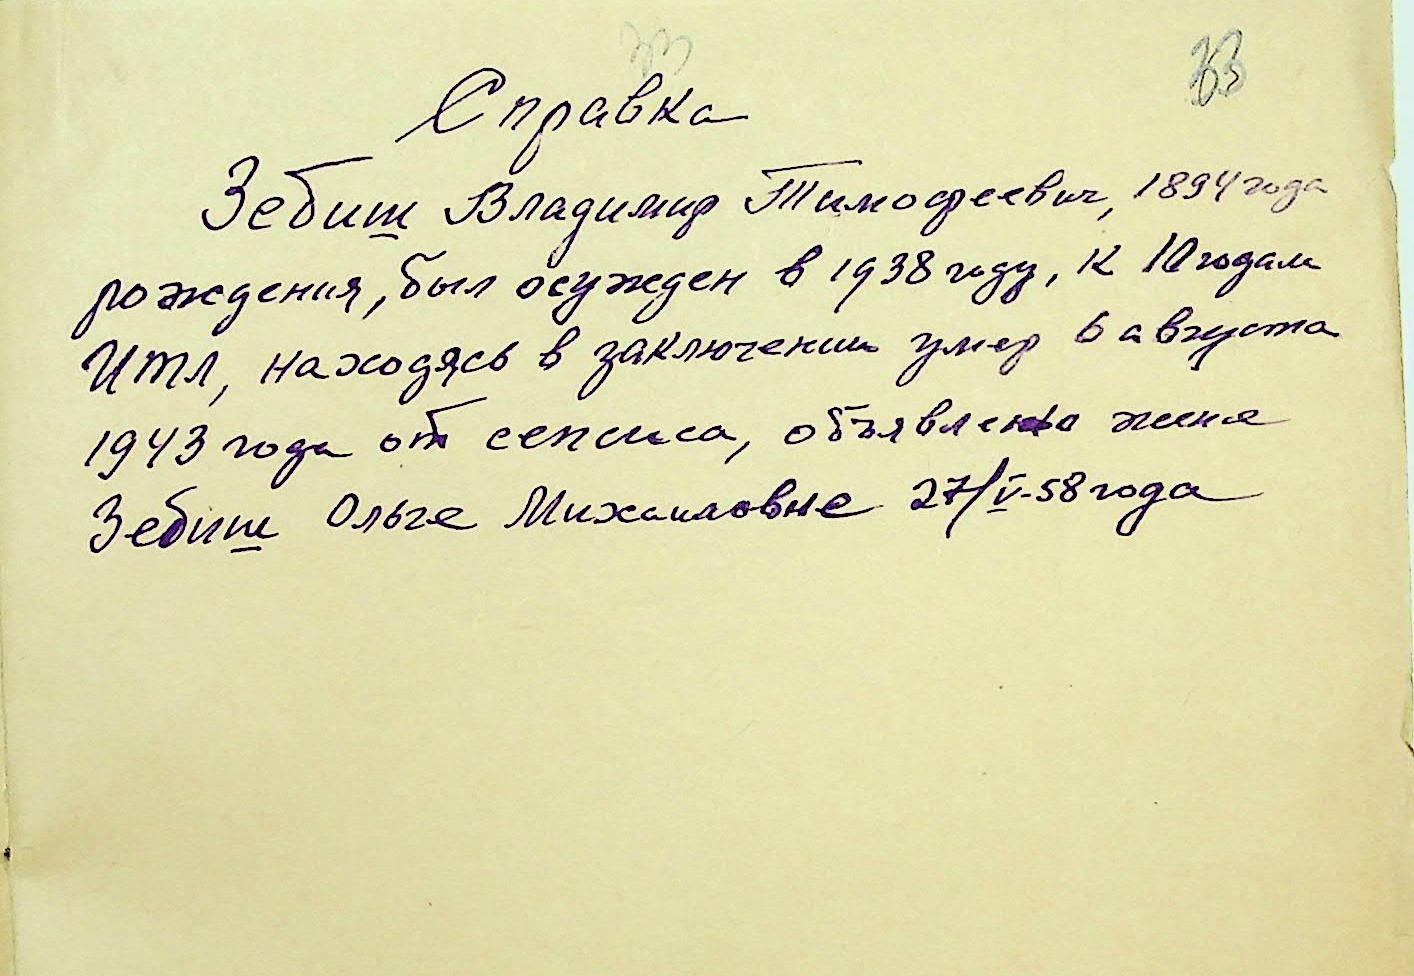 33
33
Справка
Зебиш Владимир Тимофеевич, 1894 года
рождения, был осужден в 1938 году, к 10 годам
ИТЛ, находясь в заключении умер 6 августа
1943 года от сепсиса, объявлено жене
Зебиш Ольге Михаиловне 27/V-58 года